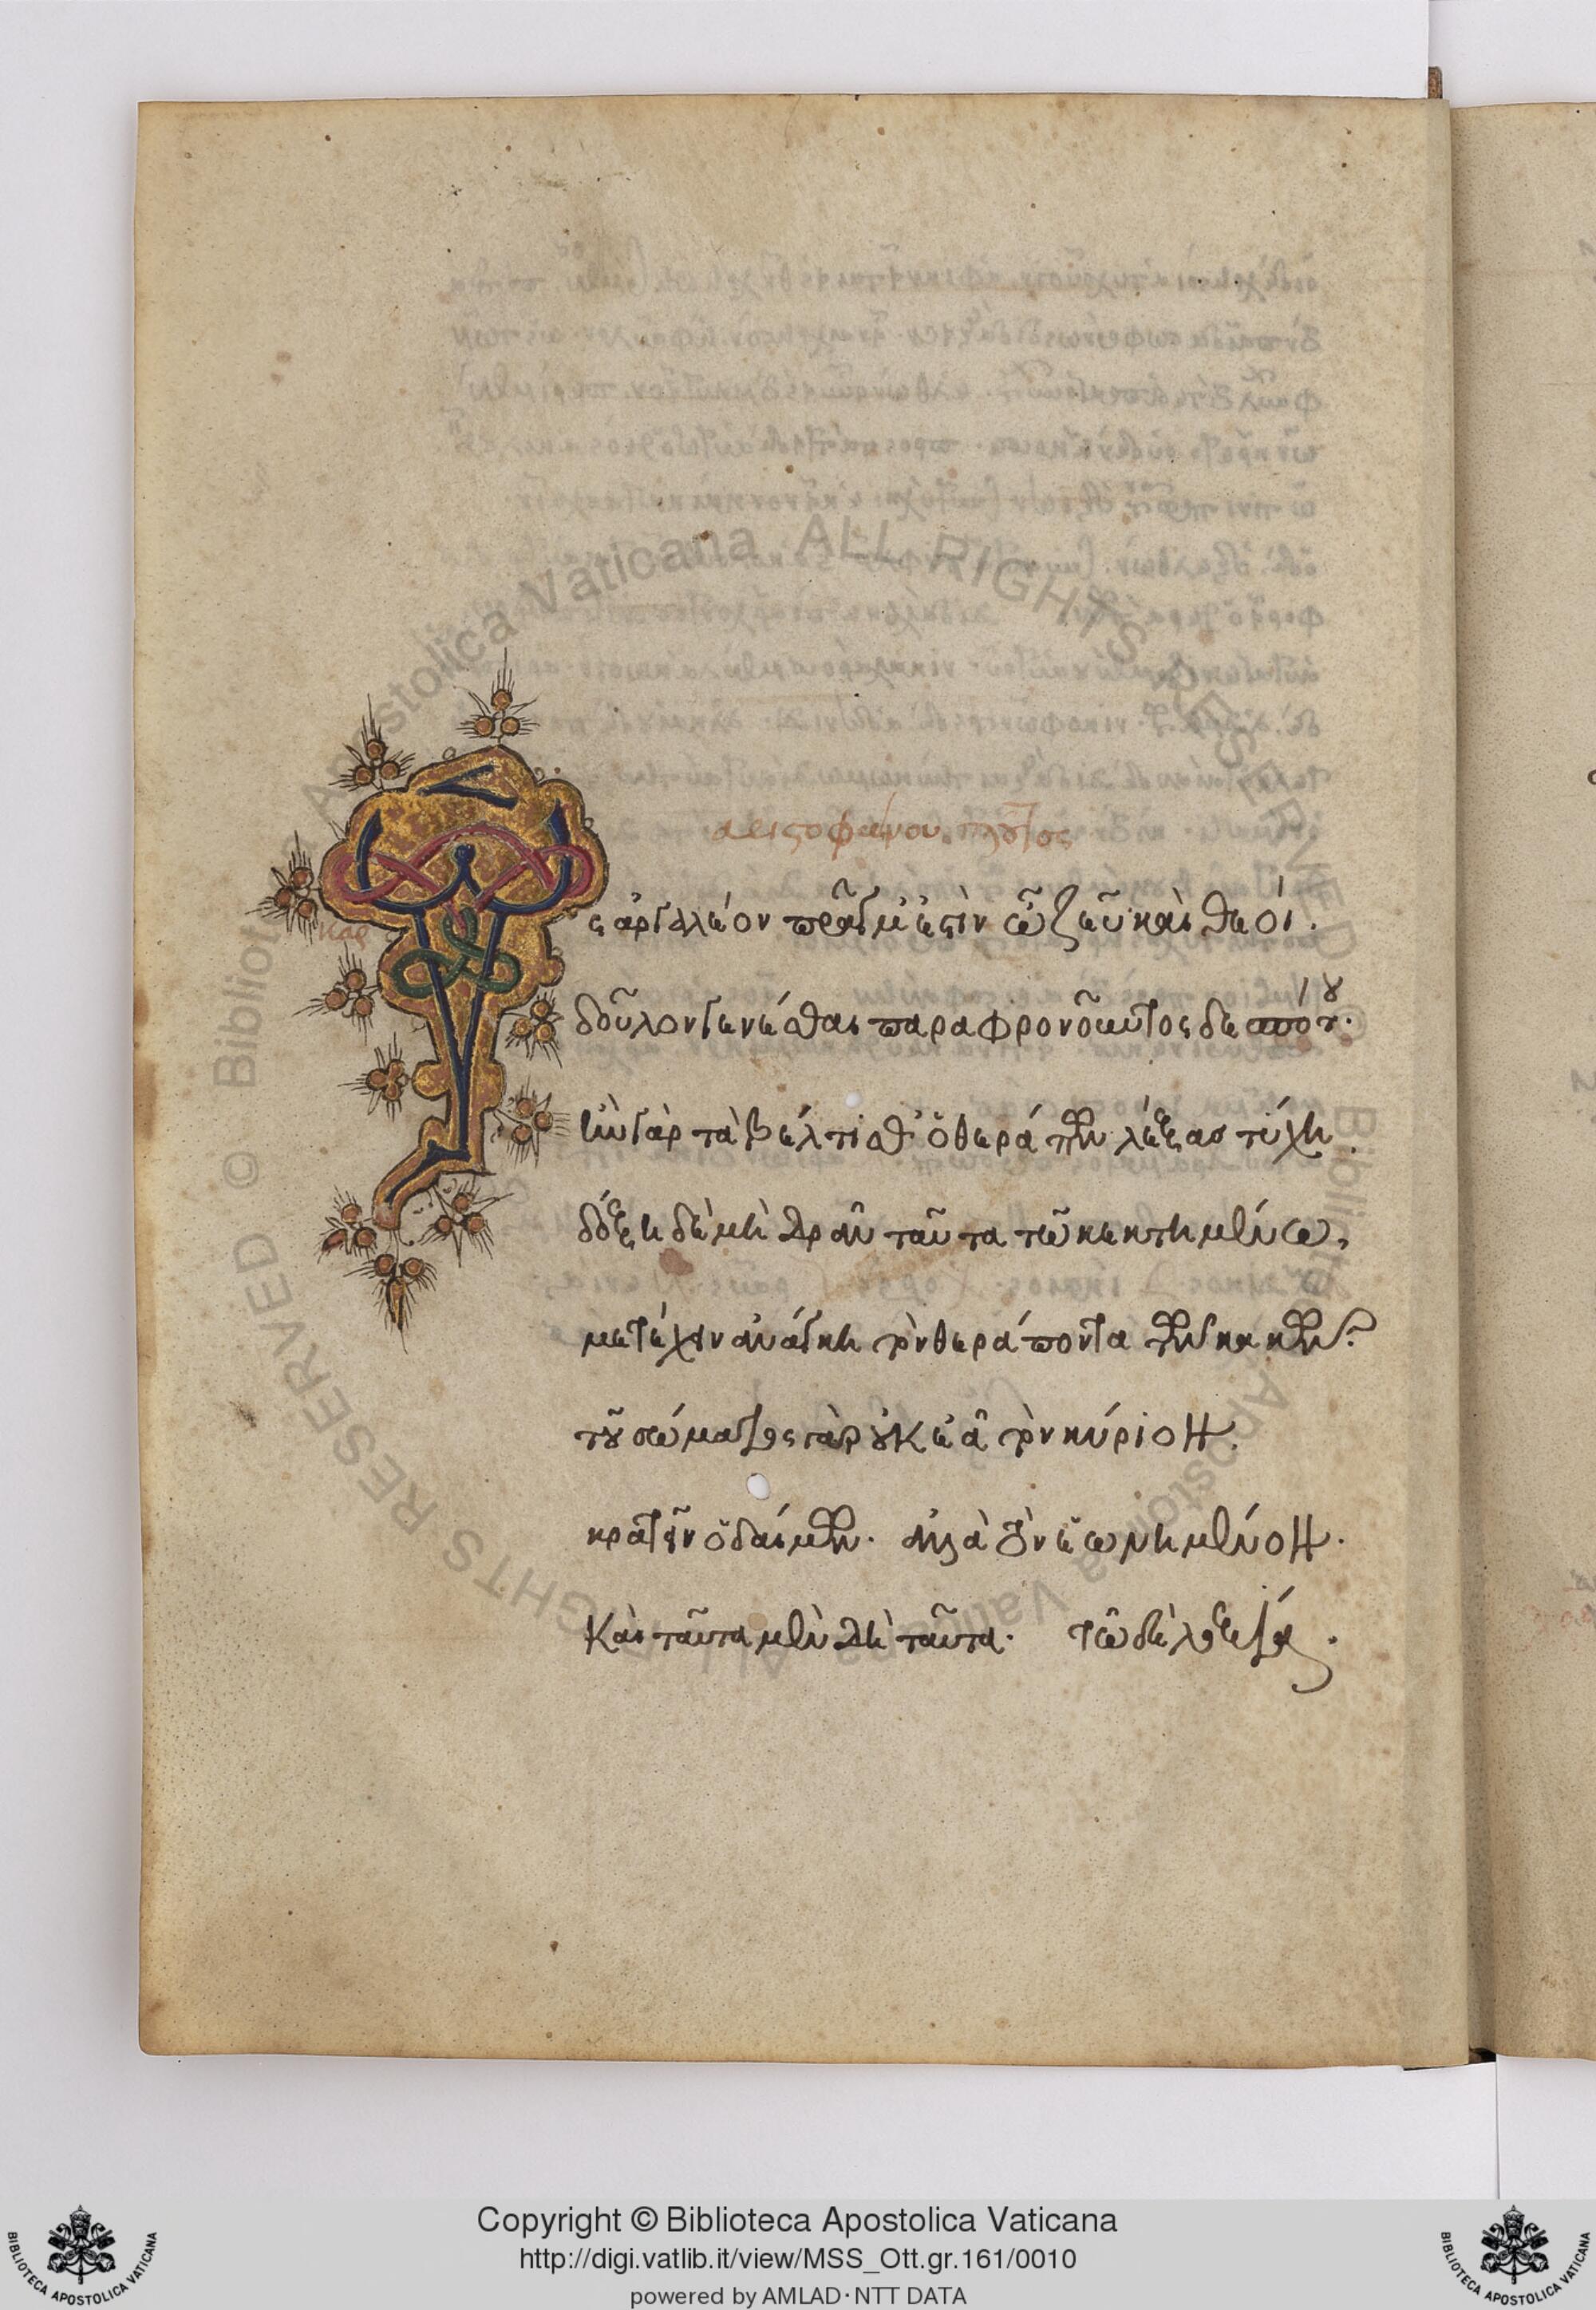 ἀριστοφάνους πλοῦτος
καρ
Ὡς ἀργαλέον πρᾶγμ' ἐστὶν ὦ ζεῦ καὶ θεοί.
δοῦλον γενέσθαι παραφρονοῦντος δεσπότου.
ἢν γὰρ τὰ βέλτισθ' ὁ θεράπων λέξας τύχη.
δόξη δὲ μὴ δρᾶν ταῦτα τῶ κεκτημένω,
μετέχειν ἀνάγκη τὸν θεράποντα τῶν κακῶν.
τοῦ σώματος γὰρ οὐκ ἐᾶ τὸν κύριον.
κρατεῖν ὁ δαίμων. ἀλλὰ τὸν ἐωνημένον.
Καὶ ταῦτα μὲν δὴ ταῦτα. τῶ δὲ λοξία.
Copyright © Biblioteca Apostolica Vaticana
http://digi.vatlib.it/view/MSS_Ott.gr.161/0010
powered by AMLAD·NTT DATA
BIBLIOTECA APOSTOLICA VATICANA
BIBLIOTECA APOSTOLICA VATICANA